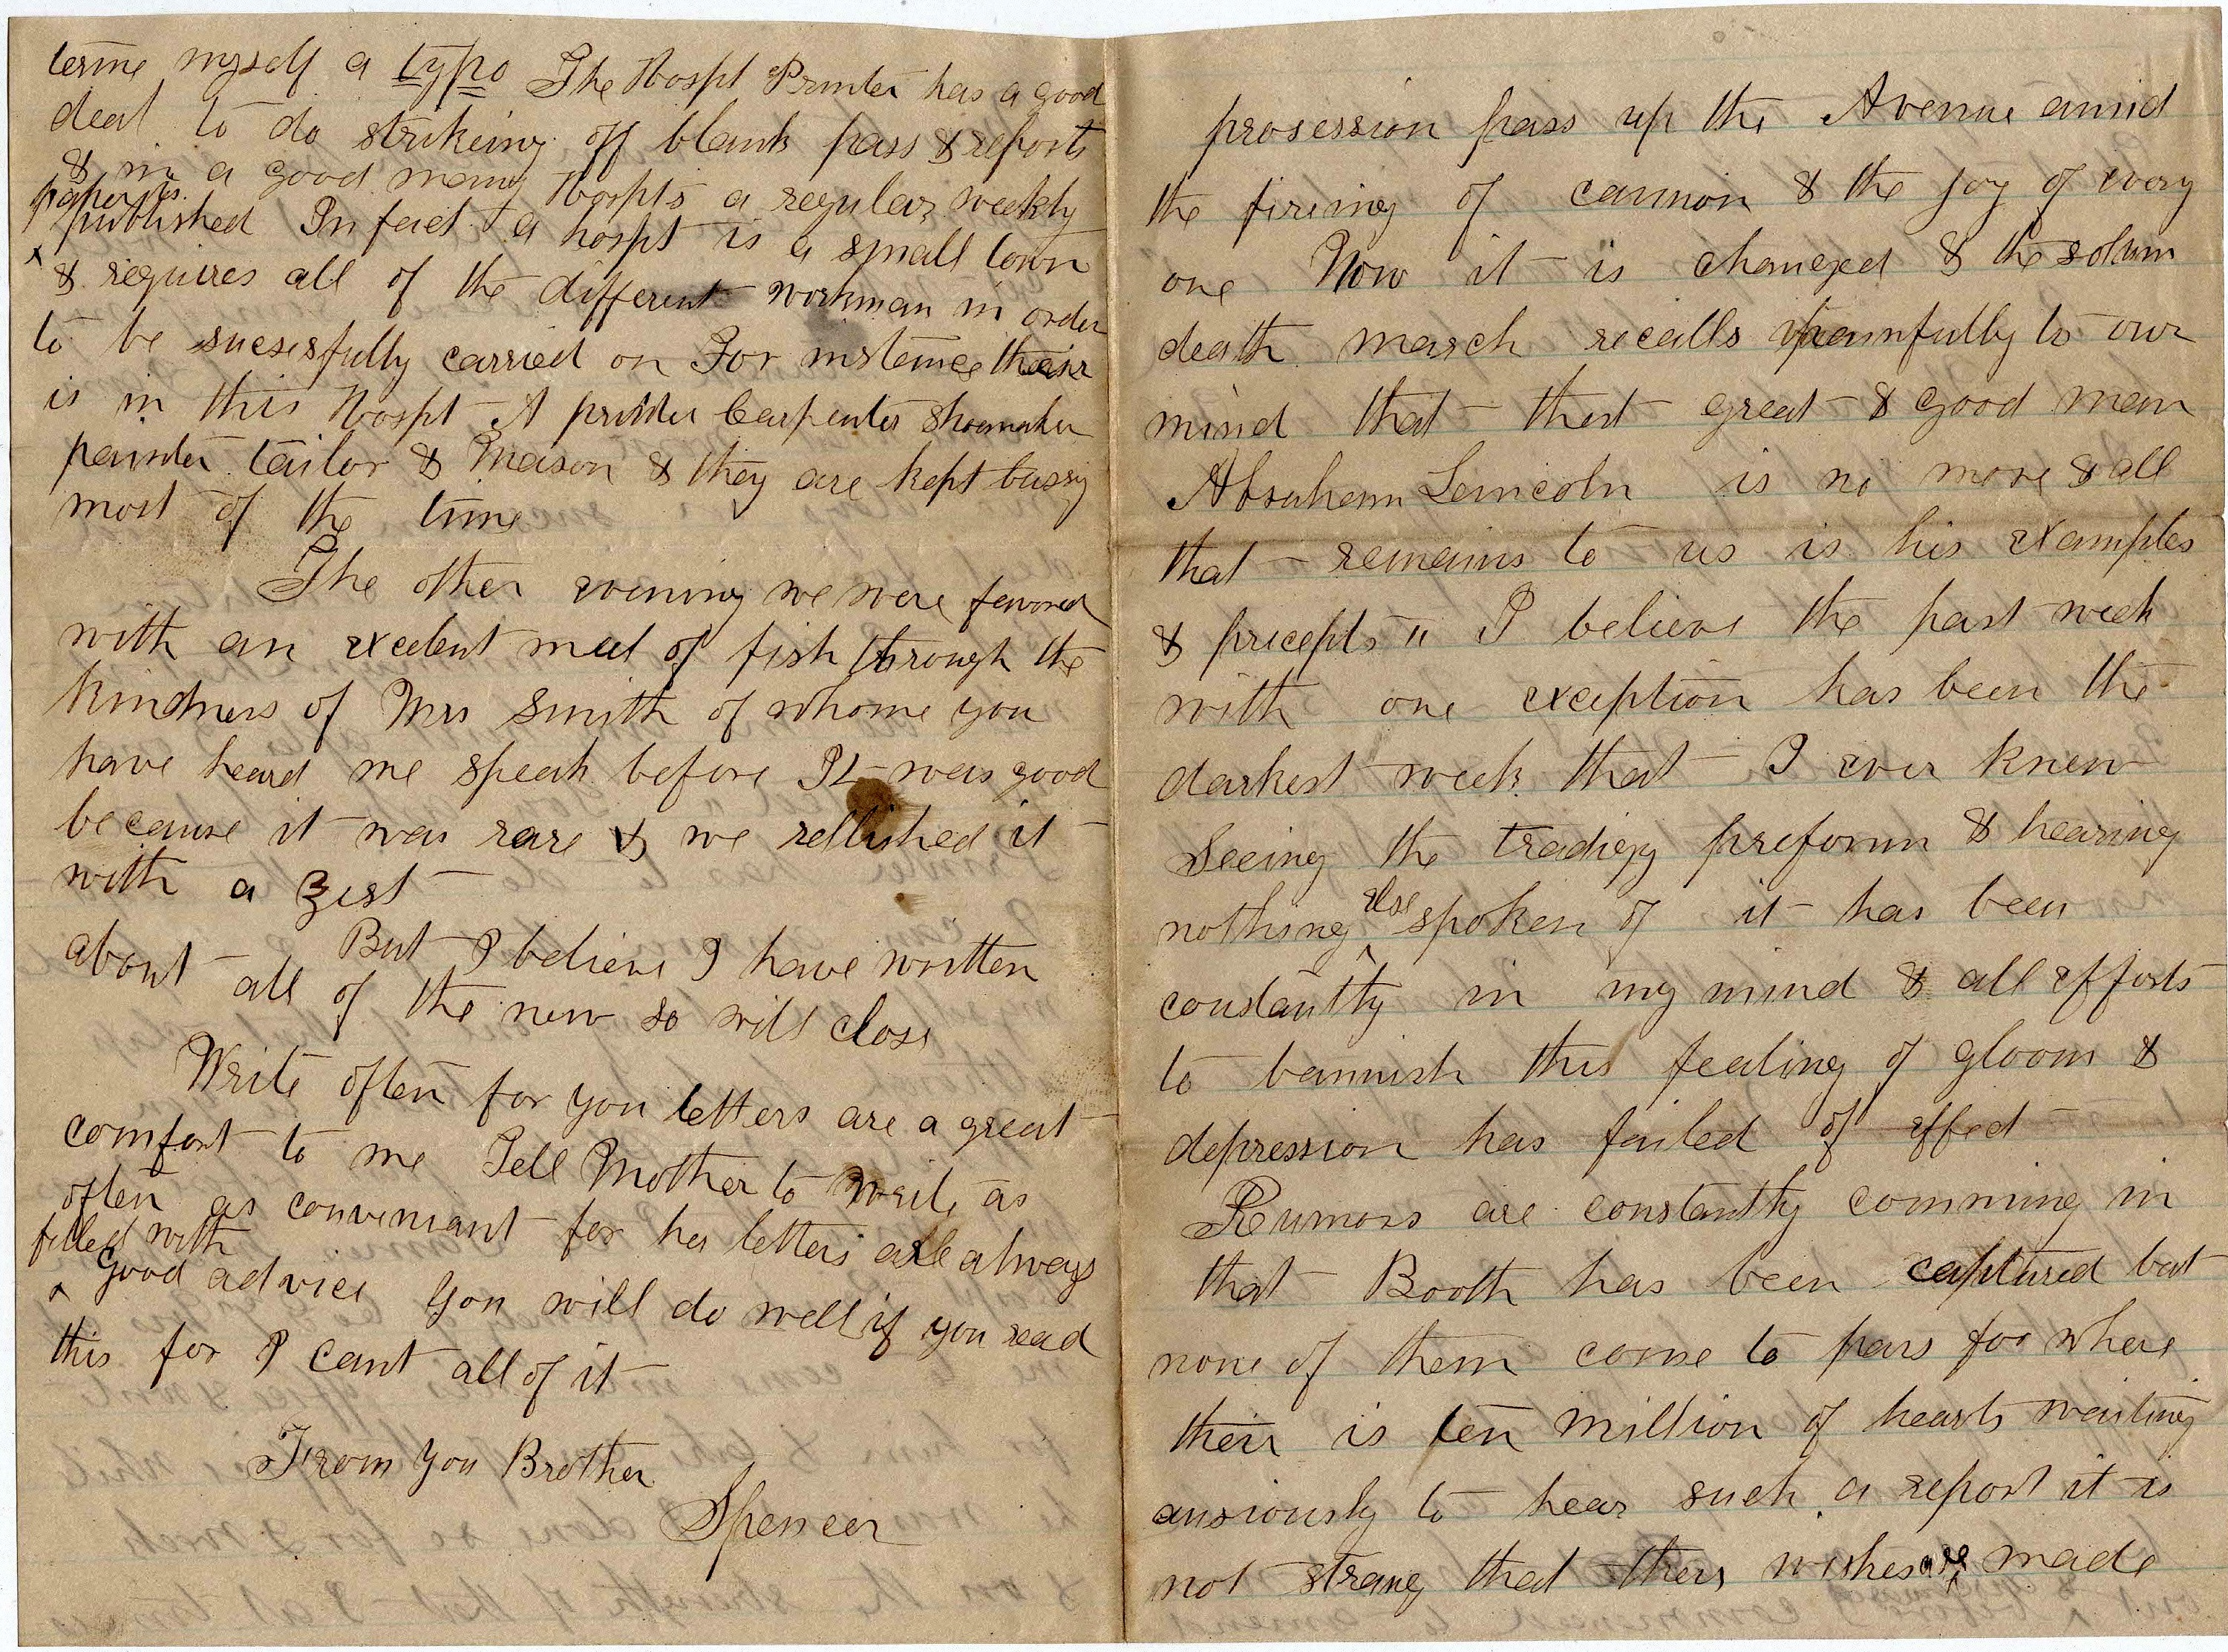 terme myself a typo The Hospt Printer has a good
deal to do strikeing off blank pass & reports
& in a good many Hospts a regular weekly
paper is
published In fact a hospt is a small town
& requires all of the different workman in order
to be sucsessfully carried on For instance their
is in this Hospt A printer Carpenter Shoemaker
painter tailor & Mason & they are kept bussy
most of the time
The other evening we were favored
with an excelent meel of fish through the
kindness of Mrs Smith of whome you
have heard me speak before It was good
because it was rare & we rellished it
with a zest
But I believe I have written
about all of the new so will close
Write often for you letters are a great
comfort to me Tell Mother to write as
often as conveniant for her letters are always
filled with
good advice You will do well if you read
this for I cant all of it
From you Brother
Spencer
prosession pass up the Avenue amid
the fireing of cannon & the joy of every
one Now it is changed & the solum
death march recalls painfully to our
mind that that great & good man
Abraham Lincoln is no more & all
that remains to us is his examples
& precepts " I believe the past week
with one exception has been the
darkest week that I ever knew
Seeing the tradiegy preforum & hearing
nothing else spoken of it has been
constantly in my mind & all efforts
to bannish this fealing of gloom &
depression has failed of effect
Rumors are constantly comming in
that Booth has been captured but
none of them come to pass for where
their is ten million of hearts waiting
anxiously to hear such a report it is
not strang that thers wishes are made